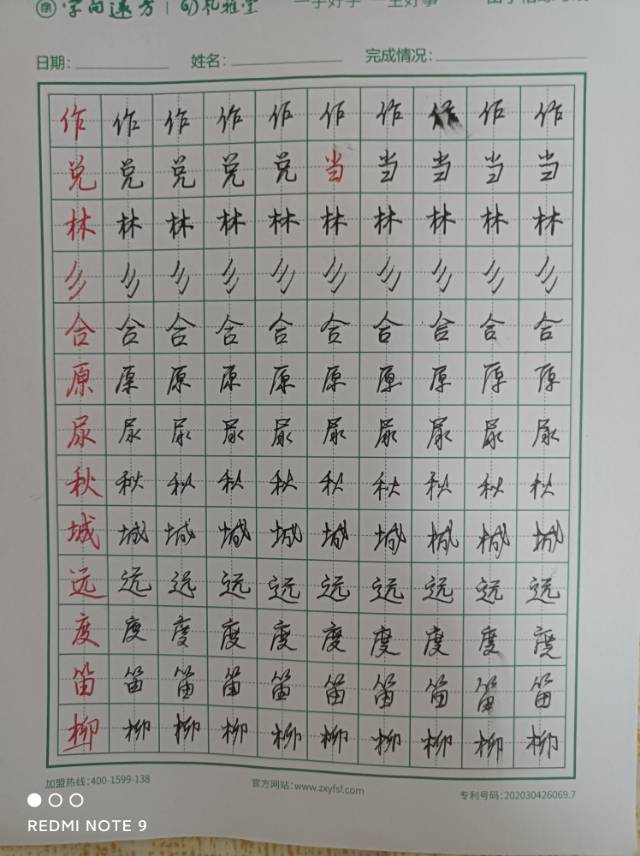 学向远方 | 幼礼雅堂
日期： 姓名： 完成情况：
作 作 作 作 作 作 作 作 作 作
兑 兑 兑 兑 兑 当 当 当 当 当
林 林 林 林 林 林 林 林 林 林
乡 乡 乡 乡 乡 乡 乡 乡 乡 乡
合 合 合 合 合 合 合 合 合 合
原 原 原 原 原 原 原 原 原 原
尿 尿 尿 尿 尿 尿 尿 尿 尿 尿
秋 秋 秋 秋 秋 秋 秋 秋 秋 秋
城 城 城 城 城 城 城 城 城 城
远 远 远 远 远 远 远 远 远 远
度 度 度 度 度 度 度 度 度 度
笛 笛 笛 笛 笛 笛 笛 笛 笛 笛
柳 柳 柳 柳 柳 柳 柳 柳 柳 柳
加盟热线：400-1599-138 官方网站：www.zxyfsf.com 专利号码：202030426069.7
REDMI NOTE 9